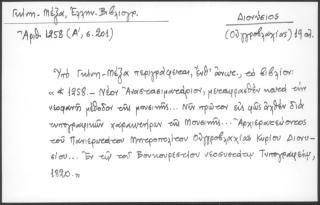 Γκίνη-Μέξα, Ἑλλην. Βιβλιογρ.
Ἀρθ. 1258 (Α', σ. 201)
Διονύσιος
(Οὐγγροβλαχίας) 19 αἰ.
Ὑπὸ Γκίνη-Μέξα περιγράφεται, ἔνθ' ἄνωτ., τὸ βιβλίον:
«* 1258.- Νέον Ἀναστασιματάριον, μεταφρασθὲν κατὰ τὴν
νεοφανῆ μέθοδον τῆς μουσικῆς... Νῦν πρῶτον εἰς φῶς ἀχθὲν διὰ
τυπογραφικῶν χαρακτήρων τῆς Μουσικῆς... Ἀρχιερατεύοντος
τοῦ Πανιερωτάτου Μητροπολίτου Οὐγγροβλαχίας Κυρίου Διονυ-
σίου... Ἐν τῷ τοῦ Βουκουρεστίου νεοσυστάτῳ Τυπογραφείῳ,
1820.»